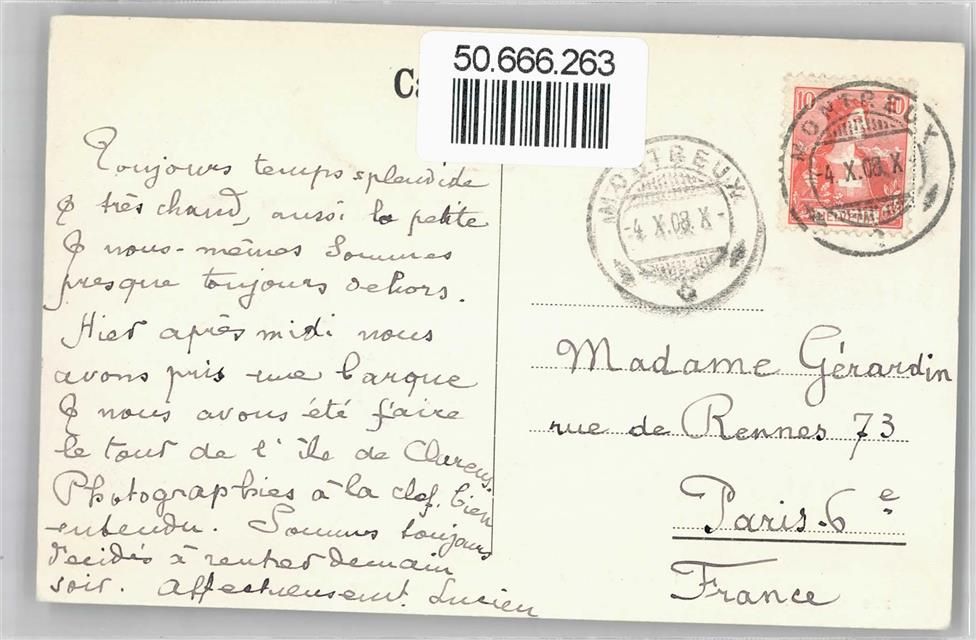 50.666.263
Toujours temps splendide
& très chaud, aussi la petite
& nous-mêmes sommes
presque toujours dehors.
Hier après midi nous
avons pris une barque
& nous avons été faire
le tour de l'île de Clarens.
Photographies à la clef, bien
entendu. Sommes toujours
décidés à rentrer demain
soir. Affectueusement. Lucien
MONTREUX
-4.X.08.X-
10
10
MONTREUX
-4.X.08.X
Madame Gérardin
rue de Rennes 73
Paris-6e
France